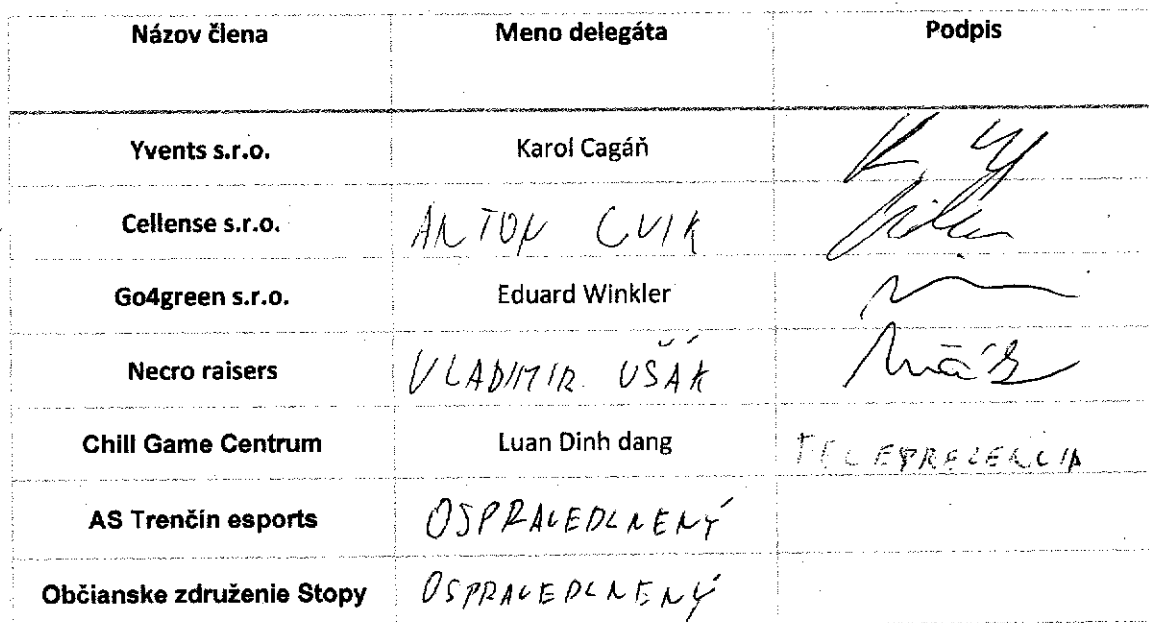 Názov člena Meno delegáta Podpis
Yvents s.r.o. Karol Cagáň
Cellense s.r.o. ANTON CVIK
Go4green s.r.o. Eduard Winkler
Necro raisers VLADIMIR UŠÁK
Chill Game Centrum Luan Dinh dang TELEPREZENCIA
AS Trenčín esports OSPRAVEDLNENÝ
Občianske združenie Stopy OSPRAVEDLNENÝ